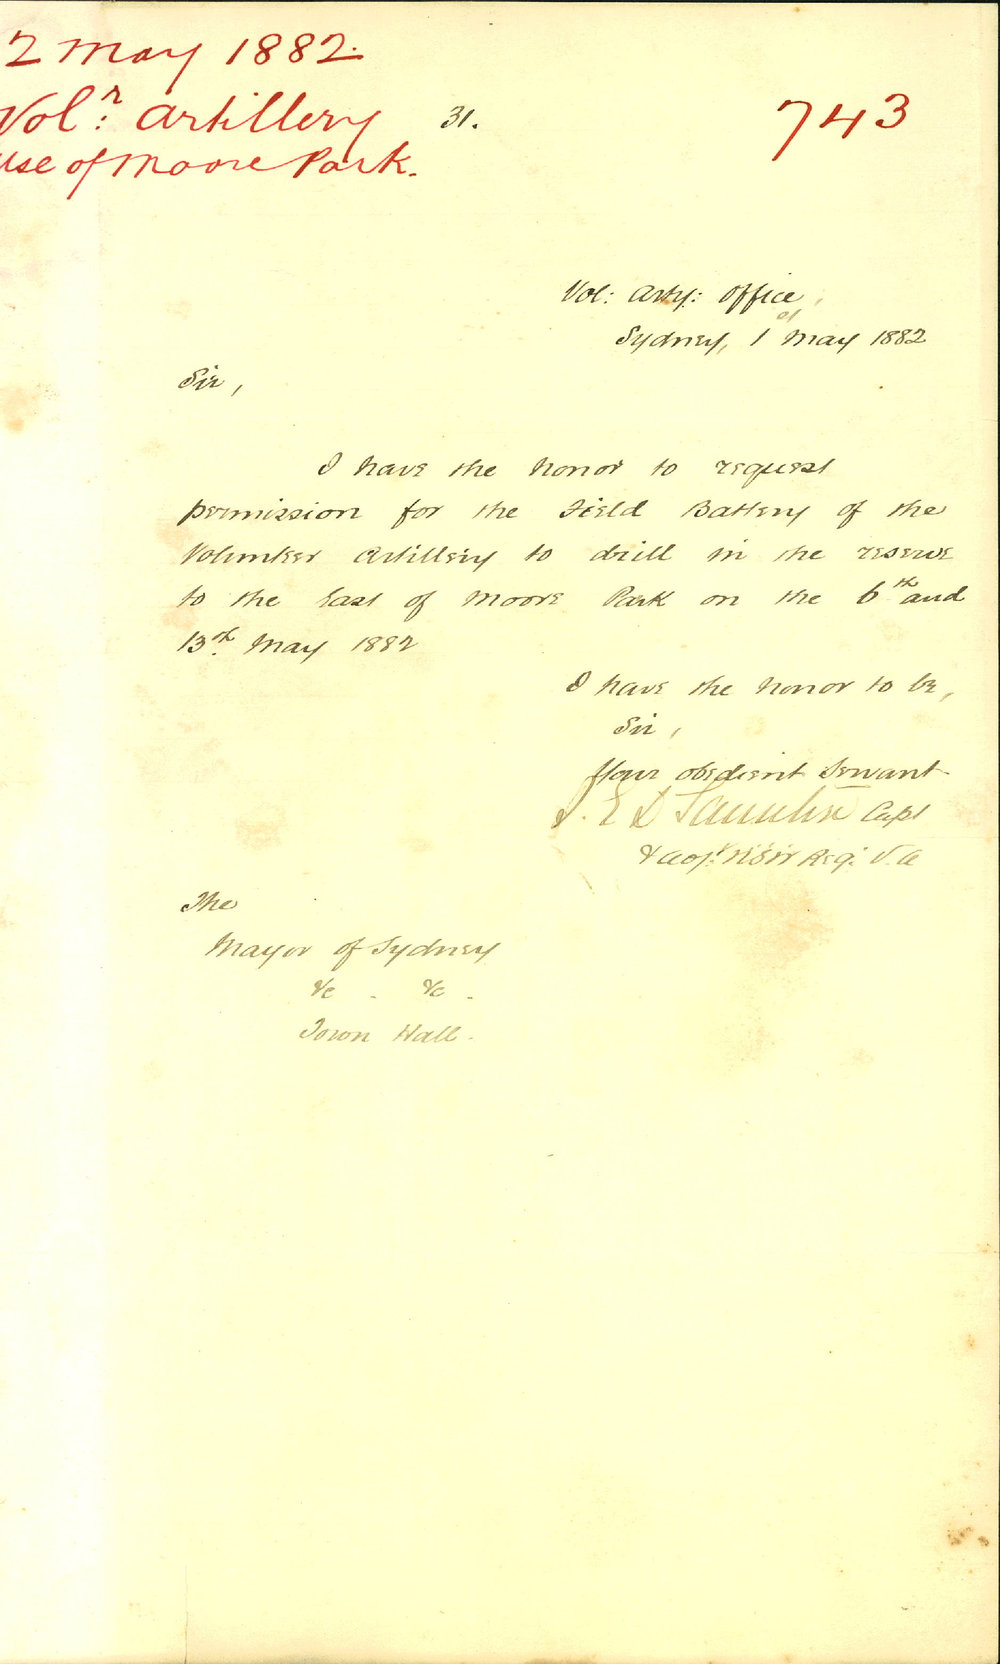 2 May 1882.
Vol.r Artillery
31.
743
use of Moore Park.
Vol: Arty: Office,
Sydney, 1st May 1882
Sir,
I have the honor to request
permission for the Field Battery of the
Volunteer Artillery to drill in the reserve
to the East of Moore Park on the 6th and
13th May 1882
I have the honor to be,
Sir,
Your obedient Servant
Capt
& Adjt. NSW Reg. V.A
The
Mayor of Sydney
&c . &c .
Town Hall.